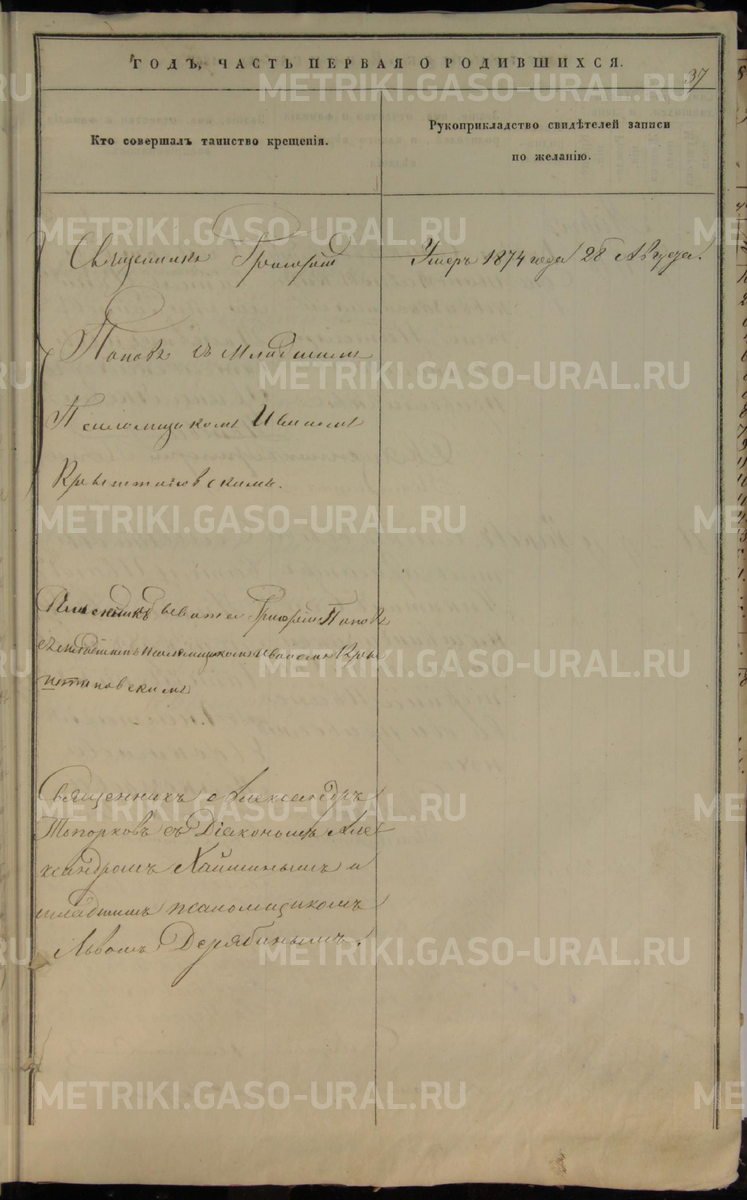 ГОДЪ, ЧАСТЬ ПЕРВАЯ О РОДИВШИХСЯ.
37
Кто совершалъ таинство крещенія.
Рукоприкладство свидѣтелей записи
по желанію.
Священникъ Григорій
Умеръ 1874 года 28 Августа.
Поповъ съ младшимъ
Псаломщикомъ Иваномъ
Крыштановскимъ.
Священникъ Григорій Поповъ
съ младшимъ псаломщикомъ Иваномъ Кры
штановскимъ
Священникъ Александръ
Топорковъ съ Діакономъ Але
ксандромъ Хайминымъ и
младшимъ псаломщикомъ
Львомъ Дерябинымъ.
METRIKI.GASO-URAL.RU